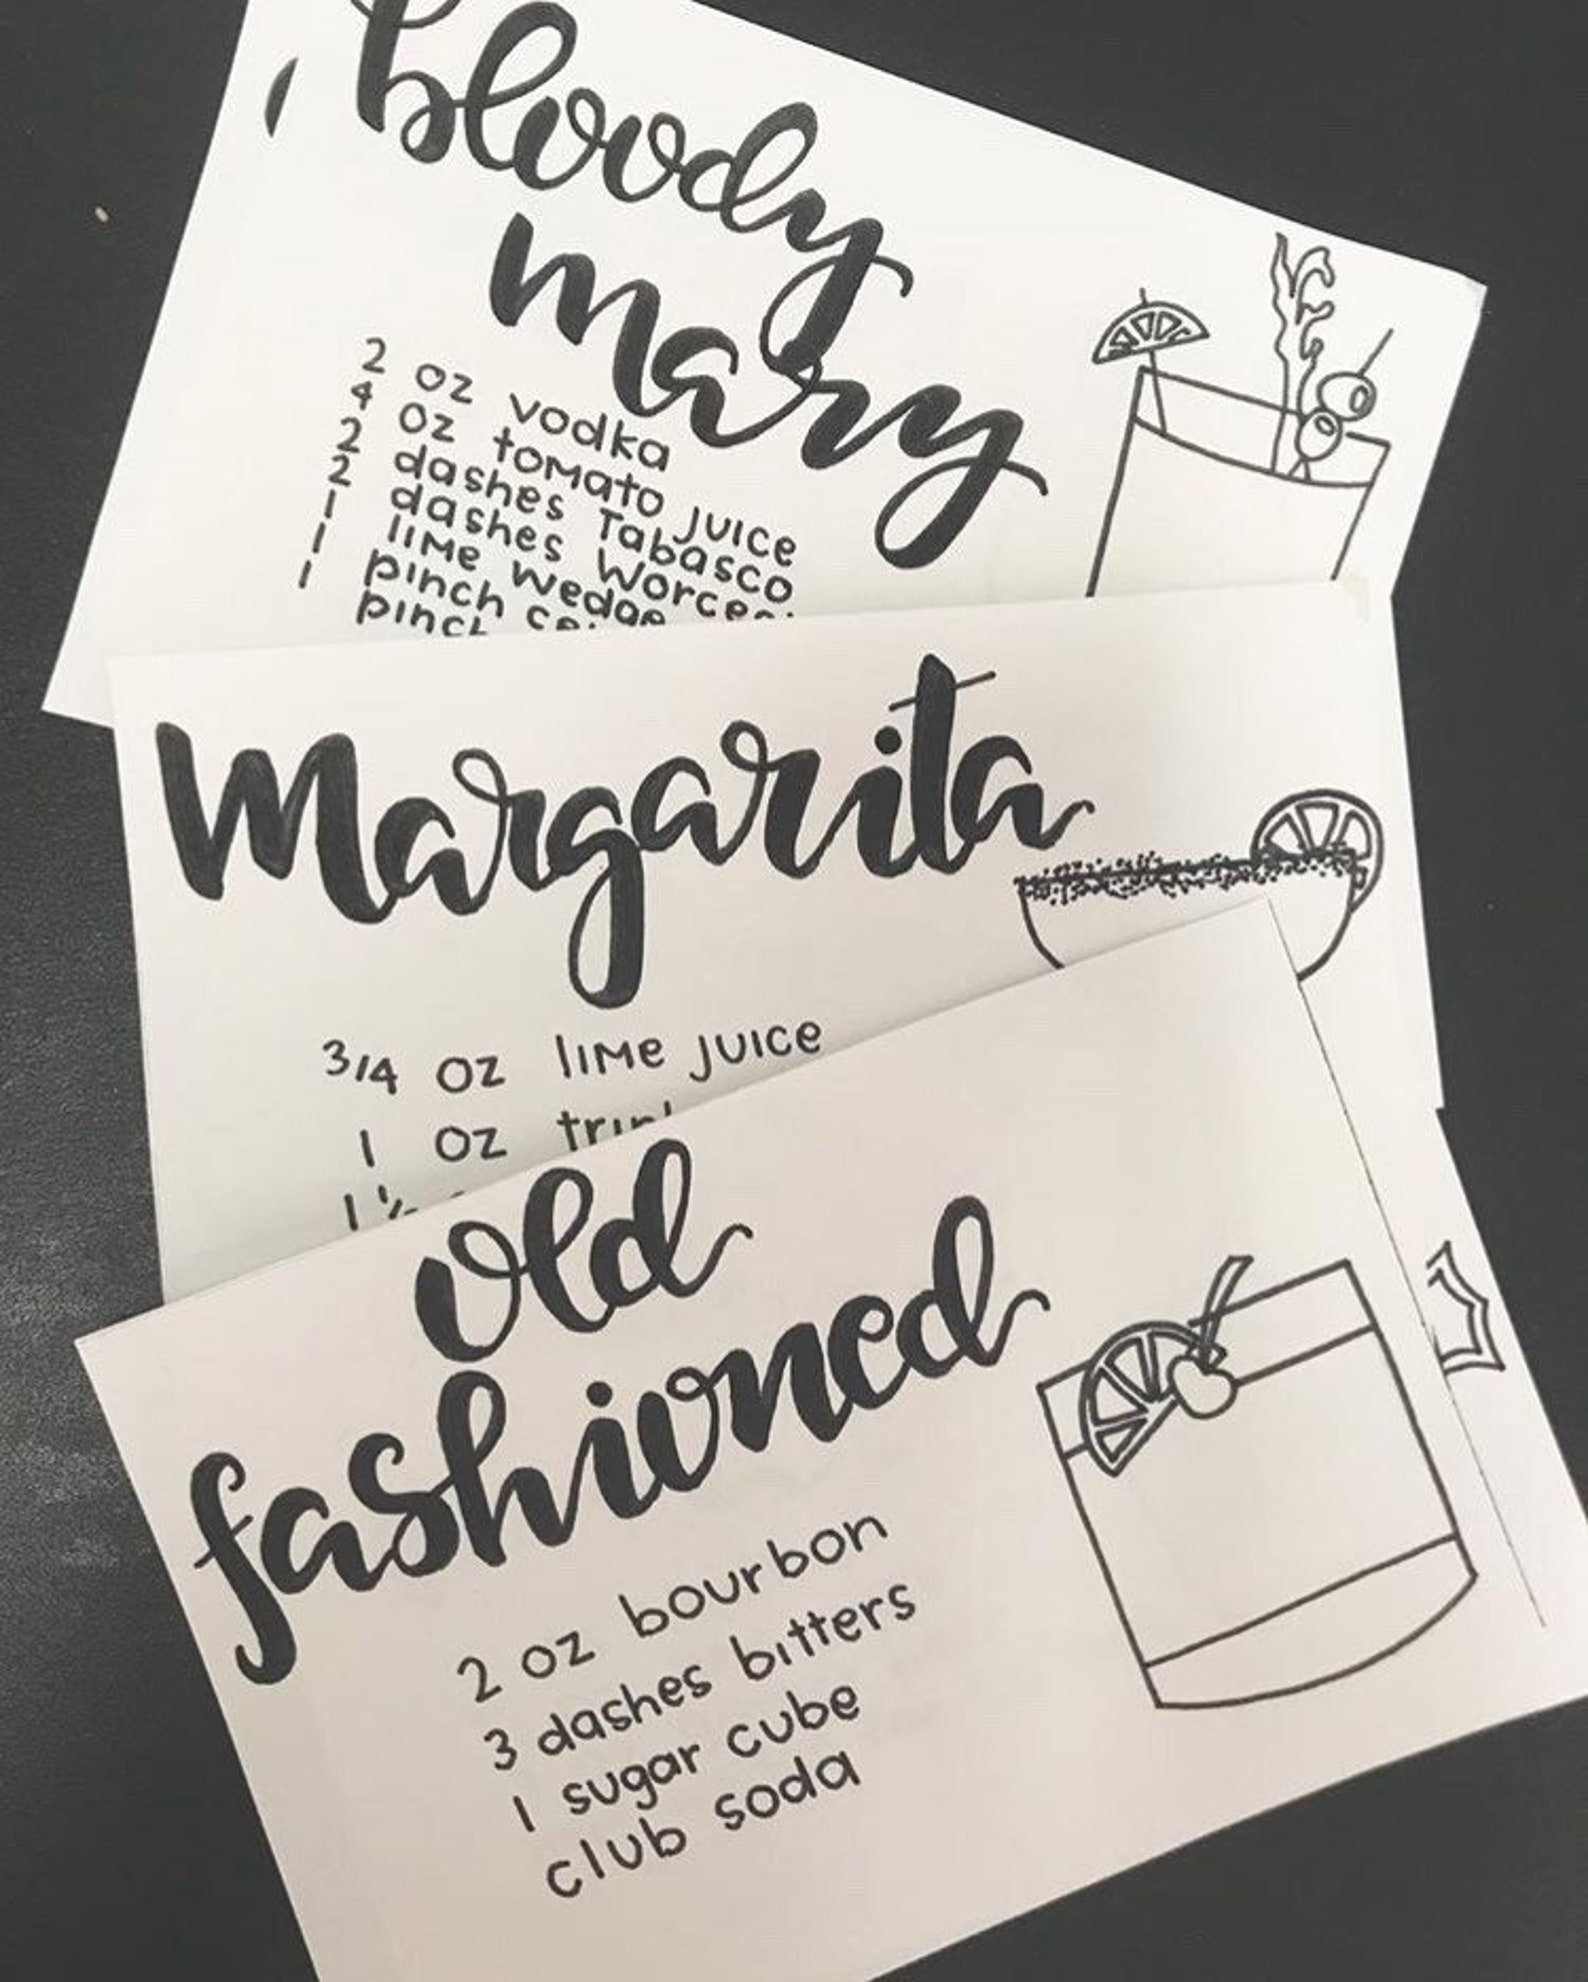 bloody
mary
2 oz vodka
4 oz tomato juice
2 dashes Tabasco
2 dashes
1 lime wedge
1 pinch
1
Margarita
3/4 oz lime juice
1 oz
1 1/2
old
fashioned
2 oz bourbon
3 dashes bitters
1 sugar cube
club soda